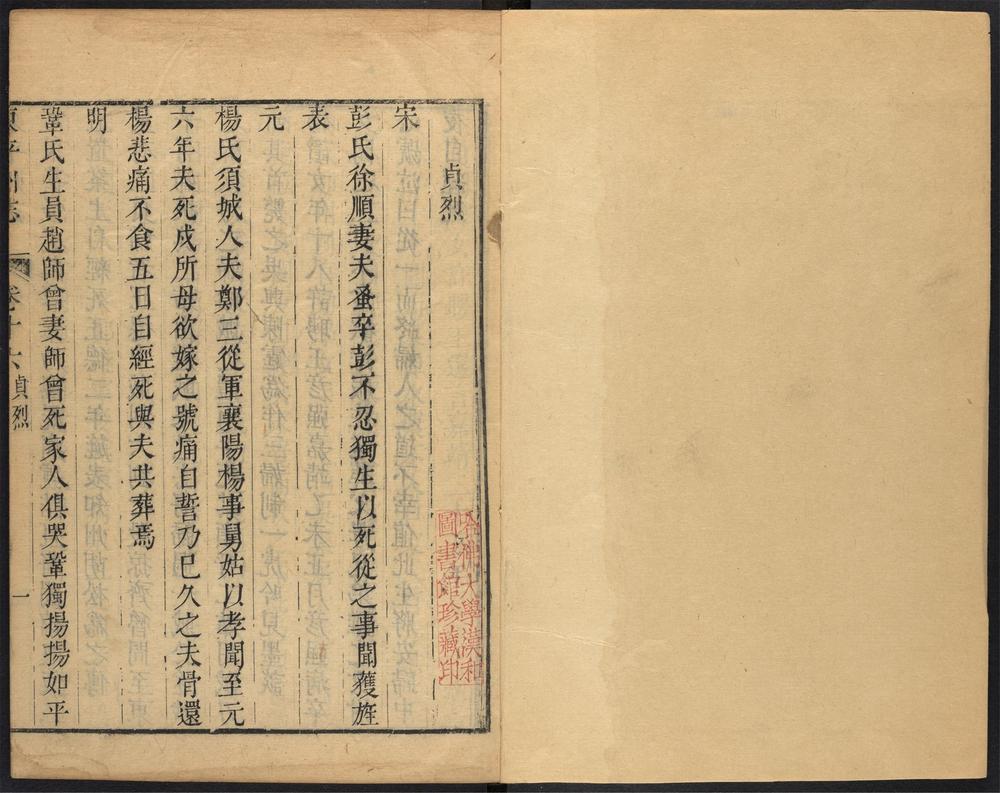 貞烈
宋
彭氏徐順妻夫蚤卒彭不忍獨生以死從之事聞獲旌
表
元
楊氏須城人夫鄭三從軍襄陽楊事舅姑以孝聞至元
六年夫死戍所母欲嫁之號痛自誓乃已久之夫骨還
楊悲痛不食五日自經死與夫共葬焉
明
鞏氏生員趙師曾妻師曾死家人俱哭鞏獨揚揚如平
東平州志 卷十六 貞烈 一
哈佛大學漢和
圖書館珍藏印